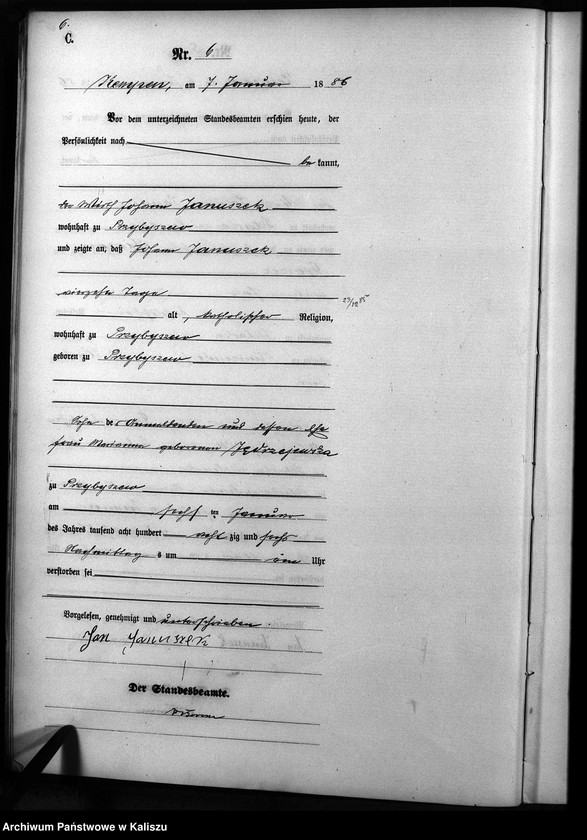 6.
C.
Nr. 6.
Kempen, am 7. Januar 1886
Vor dem unterzeichneten Standesbeamten erschien heute, der
Persönlichkeit nach
bekannt,
der Wirth Johann Januszek
wohnhaft zu Przybyszew
und zeigte an, daß Johann Januszek
vierzehn Tage
23/12 85
alt, katholischer Religion,
wohnhaft zu Przybyszew
geboren zu Przybyszew
Sohn des Anmeldenden und dessen Ehe
frau Marianna geborenen Jędrzejewska
zu Przybyszew
am sechsten Januar
des Jahres tausend acht hundert achtzig und sechs
Nachmittags um Uhr
verstorben sei
Vorgelesen, genehmigt und unterschrieben.
Jan Januszek
Der Standesbeamte.
Archiwum Państwowe w Kaliszu